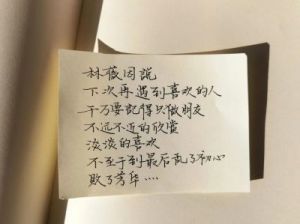 林薇因説
下次再遇到喜欢的人
千万要記得只做朋友
不远不近的欣赏
淡淡的喜欢
不至于到最后乱了初心
败了芳华....